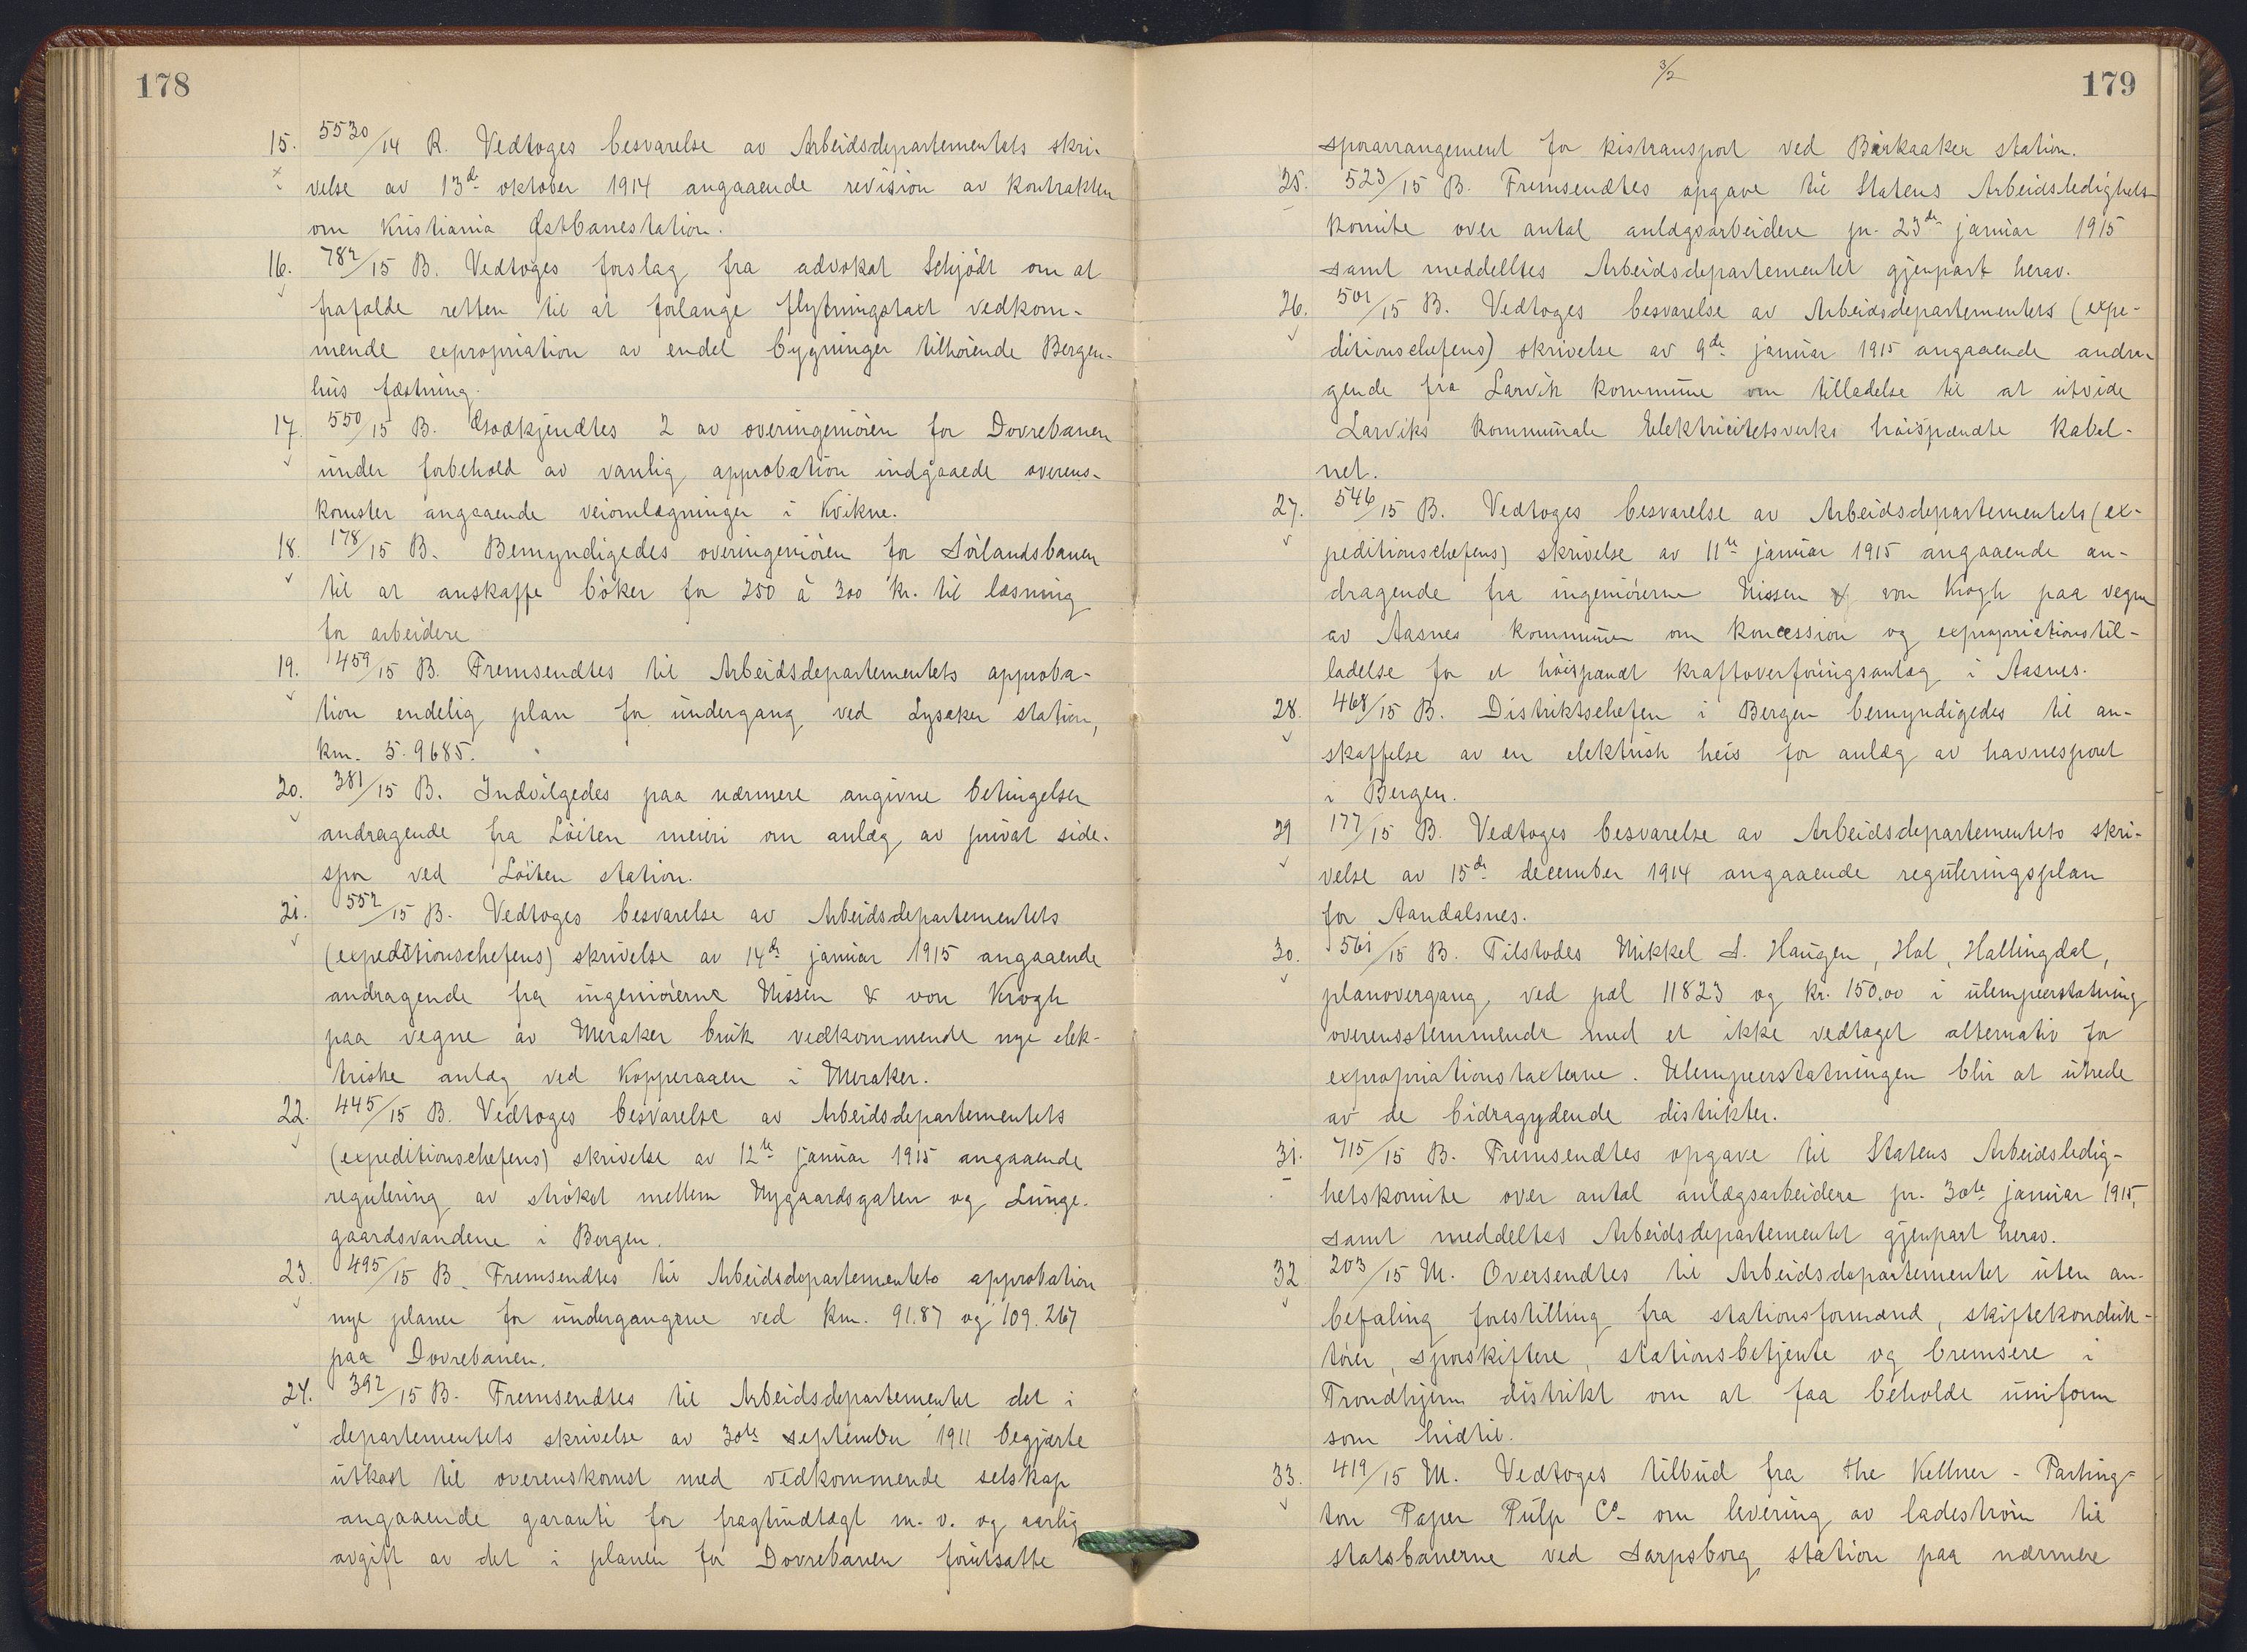 178
15. 5530/14 R. Vedtoges besvarelse av Arbeidsdepartementets skri-
velse av 13de oktober 1914 angaaende revision av kontrakten
om Kristiania Østbanestation.
16. 782/15 B. Vedtoges forslag fra advokat Schjödt om at
frafalde retten til at forlange flytningstaxt vedkom-
mende expropriation av endel bygninger tilhörende Bergen-
hus fæstning.
17. 550/15 B. Godkjendtes 2 av overingeniören for Dovrebanen
under forbehold av vanlig approbation indgaaede overens-
komster angaaende veiomlægninger i Kvikne.
18. 178/15 B. Bemyndigedes overingeniören for Sörlandsbanen
til at anskaffe böker for 250 à 300 kr. til læsning
for arbeidere
19. 459/15 B. Fremsendtes til Arbeidsdepartementets approba-
tion endelig plan for undergang ved Lysaker station,
km. 5.9685.
20. 381/15 B. Indvilgedes paa nærmere angivne betingelser
andragende fra Löiten meieri om anlæg av privat side-
spor ved Löiten station.
21. 552/15 B. Vedtoges besvarelse av Arbeidsdepartementets
(expeditionschefens) skrivelse av 14de januar 1915 angaaende
andragende fra ingeniörerne Nissen & von Krogh
paa vegne av Meraker bruk vedkommende nye elek-
triske anlæg ved Kopperaaen i Meraker.
22. 445/15 B. Vedtoges besvarelse av Arbeidsdepartementets
(expeditionschefens) skrivelse av 12te januar 1915 angaaende
regulering av ströket mellem Nygaardsgaten og Lunge-
gaardsvandene i Bergen.
23. 495/15 B. Fremsendtes til Arbeidsdepartementets approbation
nye planer for undergangene ved km. 91.87 og 109.267
paa Dovrebanen.
24. 392/15 B. Fremsendtes til Arbeidsdepartementet det i
departementets skrivelse av 30te september 1911 begjærte
utkast til overenskomst med vedkommende selskap
angaaende garanti for fragtindtægt m.v. og aarlig
avgift av det i planen for Dovrebanen forutsatte
3/2
179
sporarrangement for kistransport ved Bjerkaaker station.
25. 523/15 B. Fremsendtes opgave til Statens Arbeidsledighets-
komite over antal anlægsarbeidere pr. 23de januar 1915
samt meddeltes Arbeidsdepartementet gjenpart herav.
26. 501/15 B. Vedtoges besvarelse av Arbeidsdepartementets (expe-
ditionschefens) skrivelse av 9de januar 1915 angaaende andra-
gende fra Larvik kommune om tilladelse til at utvide
Larviks kommunale Elektricitetsverks höispændte kabel-
net.
27. 546/15 B. Vedtoges besvarelse av Arbeidsdepartementets (ex-
peditionschefens) skrivelse av 11te januar 1915 angaaende an-
dragende fra ingeniörerne Nissen & von Krogh paa vegne
av Aasnes kommune om koncession og expropriationstil-
ladelse for et höispændt kraftoverföringsanlæg i Aasnes.
28. 468/15 B. Distriktschefen i Bergen bemyndigedes til an-
skaffelse av en elektrisk heis for anlæg av havnesporet
i Bergen.
29 177/15 B. Vedtoges besvarelse av Arbeidsdepartementets skri-
velse av 15de december 1914 angaaende reguleringsplan
for Aandalsnes.
30. 561/15 B. Tilstodes Mikkel S. Haugen, Hol, Hallingdal,
planovergang ved pæl 11823 og kr. 150,00 i ulempeerstatning
overensstemmende med et ikke vedtaget alternativ for
expropriationstaxterne. Ulempeerstatningen blir at utrede
av de bidragydende distrikter.
31. 715/15 B. Fremsendtes opgave til Statens Arbeidsledig-
hetskomite over antal anlægsarbeidere pr. 30te januar 1915,
samt meddeltes Arbeidsdepartementet gjenpart herav.
32 203/15 M. Oversendtes til Arbeidsdepartementet uten an-
befaling forestilling fra stationsformænd, skiftekonduk-
törer, sporskiftere, stationsbetjente og bremsere i
Trondhjem distrikt om at faa beholde uniform
som hidtil.
33. 419/15 M. Vedtoges tilbud fra the Kellner-Parting-
ton Paper Pulp Co om levering av ladeström til
statsbanerne ved Sarpsborg station paa nærmere